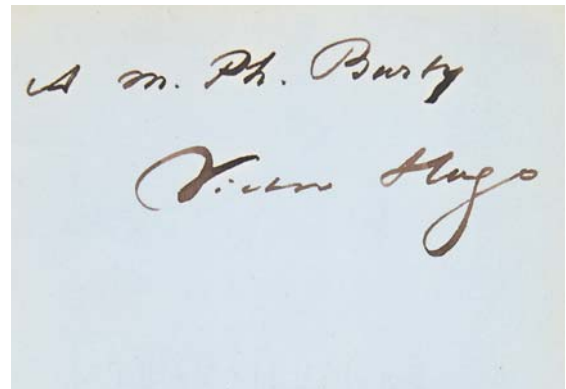 A M. Ph. Burty
Victor Hugo